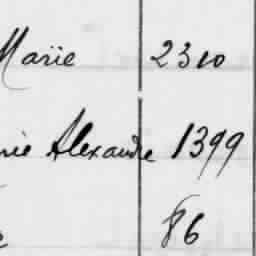 Marie 2310
rie Alexandre 1399
e 86